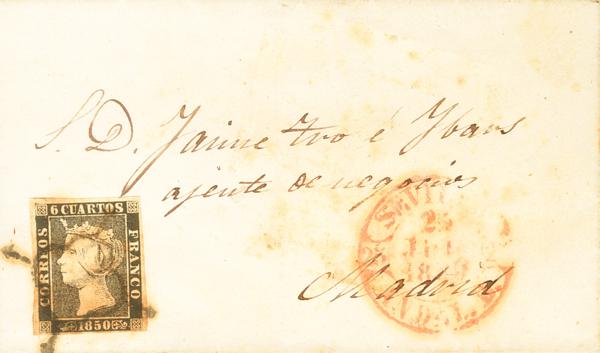 S. D. Jaime Tro é Ybars
ajente de negocios
Madrid
6 CUARTOS
CORREOS
FRANCO
1850
25